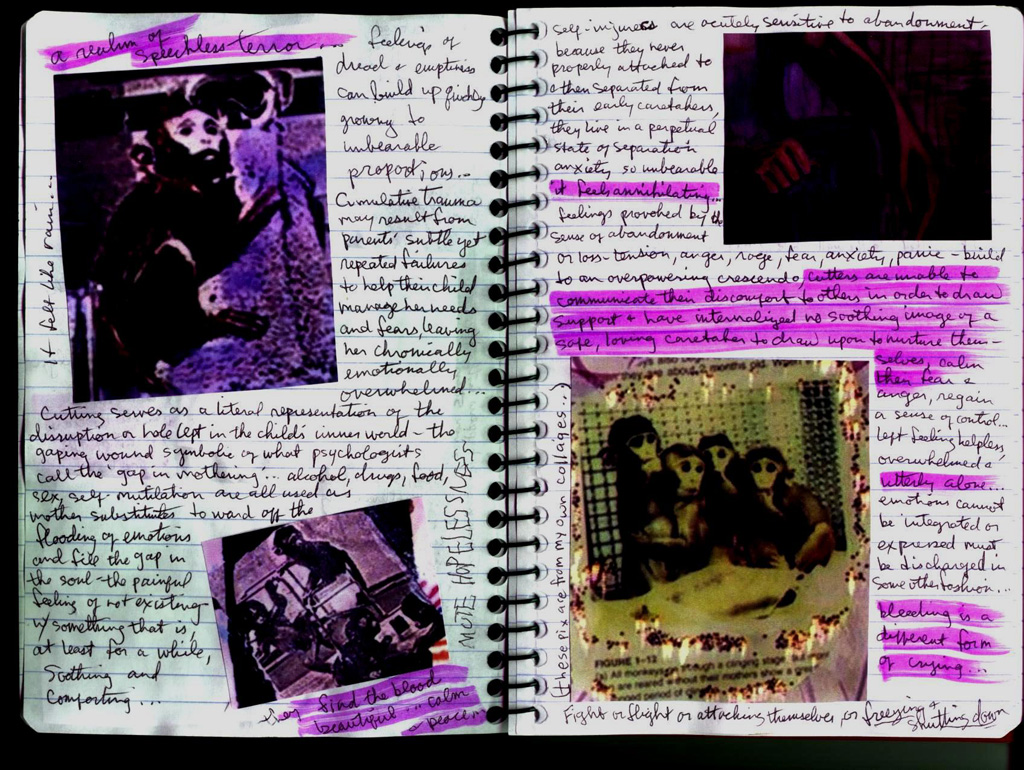 a realm of
speechless terror...
feelings of
dread & emptiness
can build up quickly
growing to
unbearable
proportions...
Cumulative trauma
may result from
parents' subtle yet
repeated failures
to help their child
manage her needs
and fears, leaving
her chronically
emotionally
overwhelmed...
it felt like rain...
Cutting serves as a literal representation of the
disruption or hole left in the child's inner world - the
gaping wound symbolic of what psychologists
call the 'gap in mothering'... alcohol, drugs, food,
sex, self-mutilation are all used as
mother substitutes to ward off the
flooding of emotions
and fill the gap in
the soul - the painful
feeling of not existing -
w/ something that is,
at least for a while,
soothing and
comforting...
MUTE HOPELESSNESS
they find the blood
beautiful... calm
peace...
self-injurers are acutely sensitive to abandonment -
because they never
properly attached to
& then separated from
their early caretakers,
they live in a perpetual
state of separation
anxiety so unbearable
it feels annihilating...
feelings provoked by the
sense of abandonment
or loss - tension, anger, rage, fear, anxiety, panic - build
to an overpowering crescendo, cutters are unable to
communicate their discomfort to others in order to draw
support & have internalized no soothing image of a
safe, loving caretaker to draw upon to nurture them-
selves, calm
their fear &
anger, regain
a sense of control...
left feeling helpless,
overwhelmed &
utterly alone...
emotions cannot
be integrated or
expressed must
be discharged in
some other fashion...
bleeding is a
different form
of crying...
(these pix are from my own collages..)
months old.
FIGURE 1-12
through a clinging stage.
Fight or flight or attacking themselves, or freezing &
shutting down